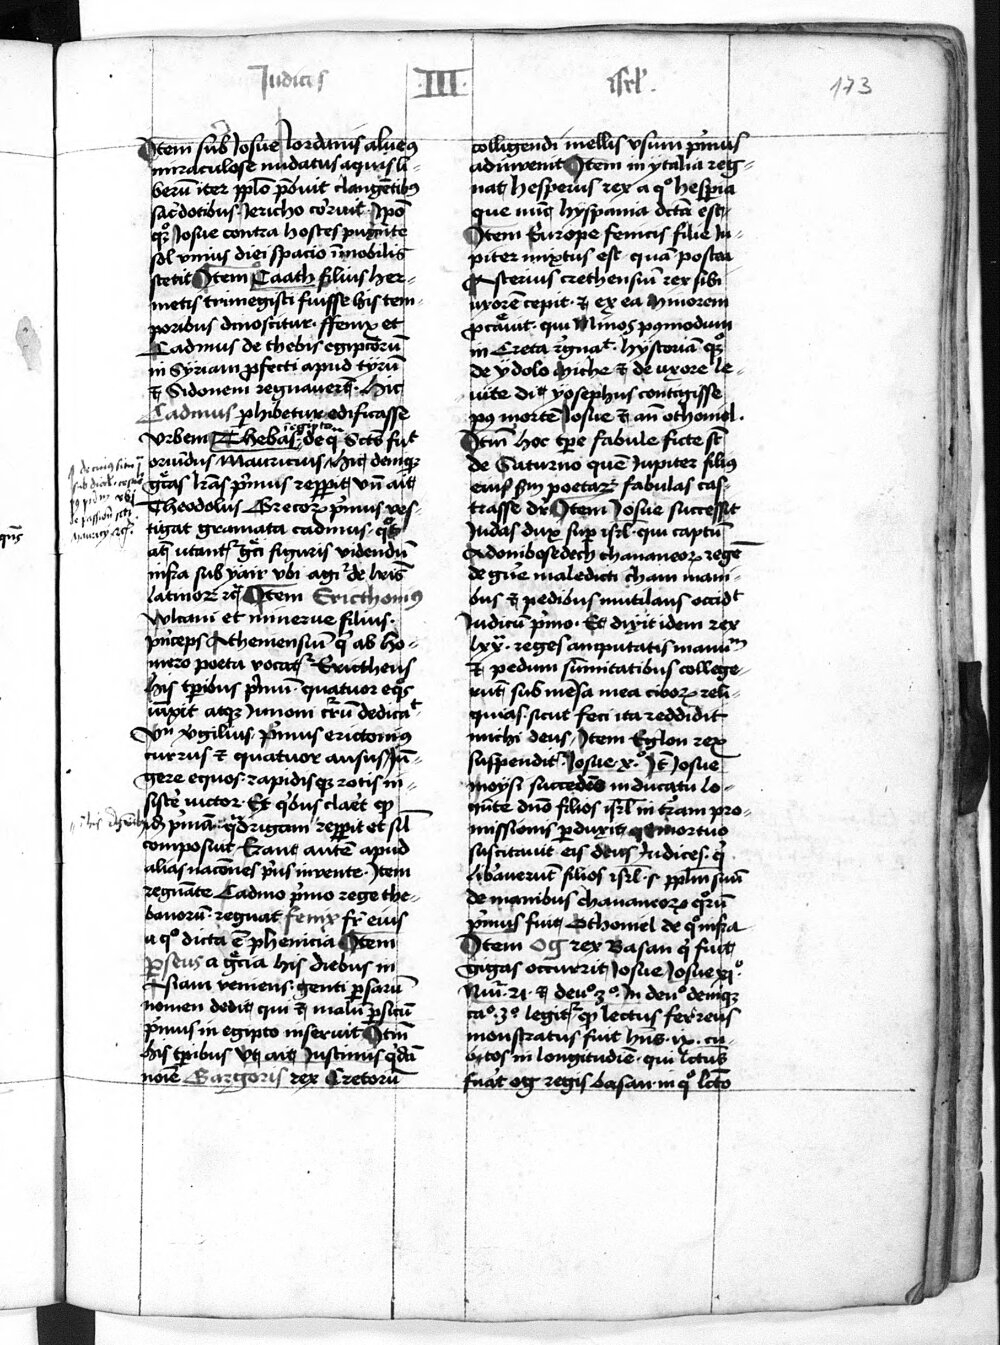 Judicis
III
isrl'.
173
Item sub Josue Jordanis alueus
miraculose nudatus aquis li-
berū iter pplo p̄buit clangētibus
sac̄dotibus Jericho cor̄uit. Ipō
qȝ Josue contra hostes pugnāte
sol vnius diei spacio īmobilis
stetit Item Caath filius her-
metis trimegisti fuisse his tem-
poribus dinoscitur. ffenix et
Cadmus de thebis egiptiorū
in Syriam profecti apud tyrū
et Sidonem regnauerūt. Hic
Cadmus phibetur edificasse
vrbem Thebas egiptior̄ de q̄ Sctūs fuit
oriūdus Mauricius. Hic deniqȝ
grecas lr̄as p̄mus repperit vn̄ ait
Theodolus Grecoꝝ p̄mus ves-
tigat gramata cadmus. qȝ
atī utantur greci figuris videndū
infra sub yair vbi agitur de lr̄is
latinoꝝ rc̄ Item Ericthonius
vulcani et minerue filius.
p̄nceps Atheniensiū q̄ ab ho-
mero poeta vocatur Erictheus
his tp̄ibus p̄mū quatuor eqos
iūxit atqȝ iunoni currū dedicat
Vn̄ v̄gilius. P̄mus erictonius
currus et quatuor ausus Iū-
gere equos rapidisqȝ rotis in-
sistē victor. Et q̄bus claret qȝ
id p̄mā q̄drigam repperit et sil
composuit. Erant autē apud
alias nacōnes p̄us invente. Item
regnāte Cadmo p̄mo rege the-
banorū. regnat fenix fr̄ eius
a qo dicta ē phenicia Item
Perseus a grecia his diebus in
Asiam veniens. genti p̄sarū
nomen dedit qui et malū p̄sicū
p̄mus in egipto inseruit Itm̄
his tp̄ibus vt ait Justinus q̄dā
noīe Gargoris rex Cretorū
colligendi mellis vsum p̄mus
adinvenit Item in ytalia reg-
nat hesperius rex a qo hesperia
que nūc hyspania dicta est
Item Europe fenicis filie Ju-
piter mixtus est quā postea
Asterius cretensiū rex sibi
uxorē cepit. et ex ea Minorem
procreauit. qui Minos postmodum
in Creta regnat. hystoriā qȝ
de ydolo Miche et de uxore le-
uite dicit yosephus contigisse
post mortē Josue et an̄ othoniel.
Itm̄ hoc tpe fabule ficte st̄
de Saturno quē Jupiter filius
eius sm̄ poetaꝝ fabulas cas-
trasse dr̄ Item Josue successit
Judas dux sup isrl. qui captū
Adonibesedech chananeoꝝ regē
de gn̄e maledicti cham mani-
bus et pedibus mutilans occidit
Judicū p̄mo. Et dixit idem rex
lxx. reges amputatis manuū
et pedum sūmitatibus collige-
rūt sub mēsa mea ciboꝝ reli-
quias. sicut feci ita reddidit
michi deus. Item Eglon rex
suspendit. Josue x.o It̄ Josue
moysi succedēs in ducatu lo-
qūte dn̄o filios isrl in terram pro-
missionis p̄duxit quo mortuo
suscitauit eis deus Judices. q̄
lib̄auerūt filios isrl. s. pplm̄ suū
de manibus chananeoꝝ quoꝝ
p̄mus fuit Othoniel de qo infra
Item Og rex Basan q̄ fuit
gigas occurrit Josue Josue xj.o
Nūi. 21. et deuo. 3o. In deuo. deniqȝ
cao. 3o legitur qȝ lectus ferreus
monstratus fuit hn̄s .ix. cu-
bitos in longitudīe. qui lectus
fuerat og regis basan. in qo lecto